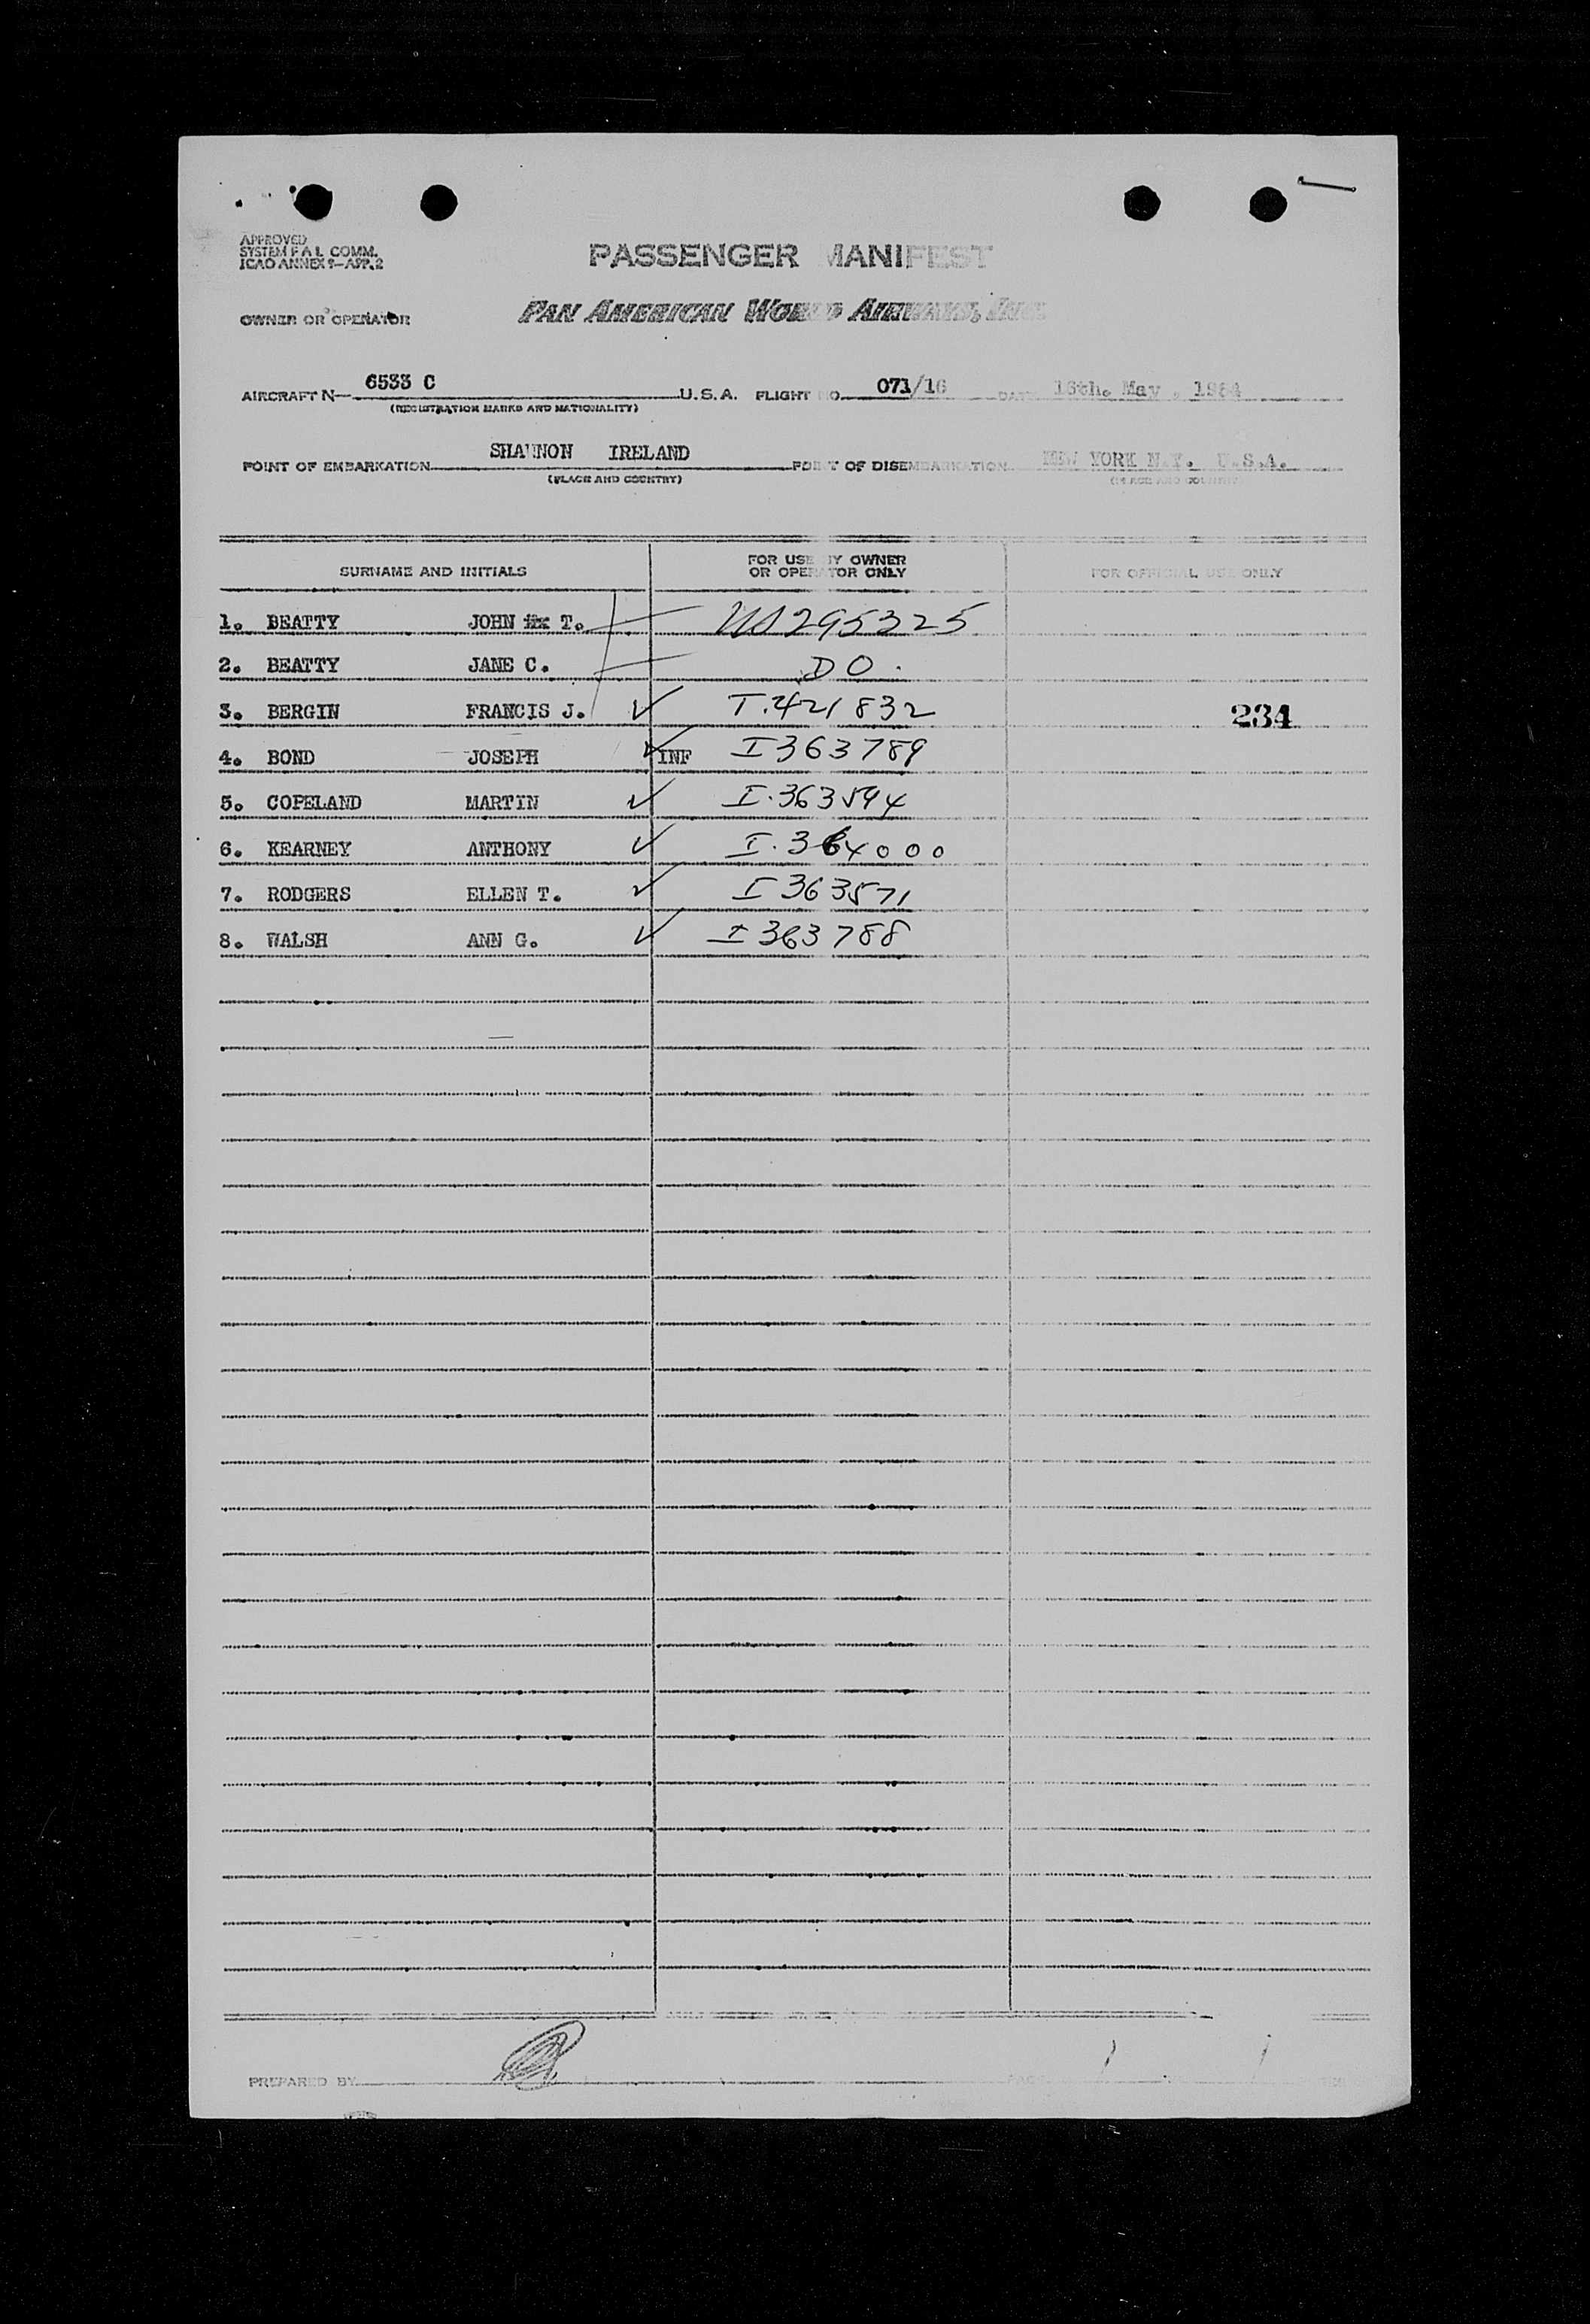 APPROVED
SYSTEM F A L COMM.
ICAO ANNEX 9—APP. 2
PASSENGER MANIFEST
OWNER OR OPERATOR PAN AMERICAN WORLD AIRWAYS, INC.
AIRCRAFT N— 6533 C U.S.A. FLIGHT NO. 071/16 DATE 16th. May, 1954
(REGISTRATION MARKS AND NATIONALITY)
POINT OF EMBARKATION SHANNON IRELAND POINT OF DISEMBARKATION NEW YORK N.Y. U.S.A.
(PLACE AND COUNTRY) (PLACE AND COUNTRY)
SURNAME AND INITIALS FOR USE BY OWNER OR OPERATOR ONLY FOR OFFICIAL USE ONLY
1. BEATTY JOHN T. US295325
2. BEATTY JANE C. DO.
3. BERGIN FRANCIS J. T.421832 234
4. BOND JOSEPH INF I363789
5. COPELAND MARTIN I.363594
6. KEARNEY ANTHONY I.364000
7. RODGERS ELLEN T. I363571
8. WALSH ANN G. I363788
PREPARED BY PAGE 1 1